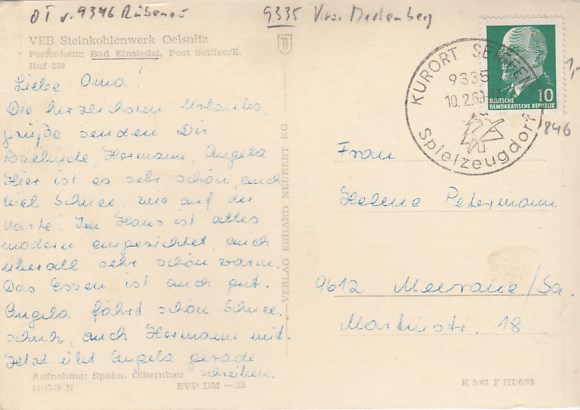 OT v. 9346 Rübenau
9335
VEB Steinkohlenwerk Oelsnitz
Ferienheim Bad Einsiedel, Post Seiffen/E.
Ruf 220
Liebe Oma!
Die herzlichsten Urlaubs-
grüße senden Dir
Hermann, Angela
Hier ist es sehr schön, auch
viel Schnee, wie auf der
Karte. Im Haus ist alles
modern eingerichtet, auch
überall sehr schön warm.
Das Essen ist auch gut.
Angela fährt schön Schnee-
schuh, auch Hermann mit.
Jetzt übt Angela gerade
schreiben.
Aufnahme: Spahn, Olbernhau
EVP DM —,25
VERLAG ERHARD NEUBERT KG
KURORT SEIFFEN
9335
10.2.69
Spielzeugdorf
10
DEUTSCHE
DEMOKRATISCHE REPUBLIK
1,-
846
Frau
Helene Petermann
9612 Meerane/Sa.
Martinstr. 18